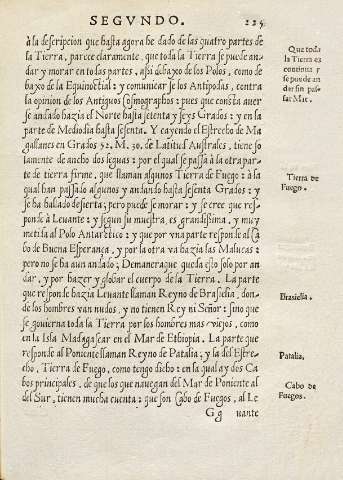 SEGVNDO. 225.
à la descripcion que hasta agora he dado de las quatro partes de
la Tierra, parece claramente, que toda la Tierra se puede an-
dar y morar en todas partes, assi debaxo de los Polos, como de
baxo de la Equinoctial: y comunicar se los Antipodas, contra
la opinion de los Antiguos Cosmographos: pues que consta auer
se andado hazia el Norte hasta setenta y seys Grados: y en la
parte de Mediodia hasta sesenta. Y cayendo el Estrecho de Ma
gallanes en Grados 52. M. 30. de Latitud Australes, tiene so
lamente de ancho dos leguas: por el qual se passa à la otra par-
te de tierra firme, que llaman algunos Tierra de Fuego: à la
qual han passado algunos y andando hasta sesenta Grados: y
se ha hallado desierta; pero puede se morar: y se cree que res-
ponde à Leuante: y segun su muestra, es grandissima, y muy
metida al Polo Antarctico: y que por vna parte responde al Ca
bo de Buena Esperança, y por la otra va hazia las Malucas:
pero no se ha aun andado; Demanera que queda esto solo por an
dar, y por hazer y globar el cuerpo de la Tierra. La parte
que responde hazia Leuante llaman Reyno de Brasielia, don-
de los hombres van nudos, y no tienen Rey ni Señor: sino que
se gouierna toda la Tierra por los hombres mas viejos, como
en la Isla Madagascar en el Mar de Ethiopia. La parte que
responde al Poniente llaman Reyno de Patalia, y la del Estre-
cho, Tierra de Fuego, como tengo dicho: en la qual ay dos Ca
bos principales, de que los que nauegan del Mar de Poniente al
del Sur, tienen mucha cuenta: que son Cabo de Fuegos, al Le
G g uante
Que toda
la Tierra es
continua y
se puede an
dar sin pas-
sar Mar.
Tierra de
Fuego.
Brasielia.
Patalia,
Cabo de
Fuegos.